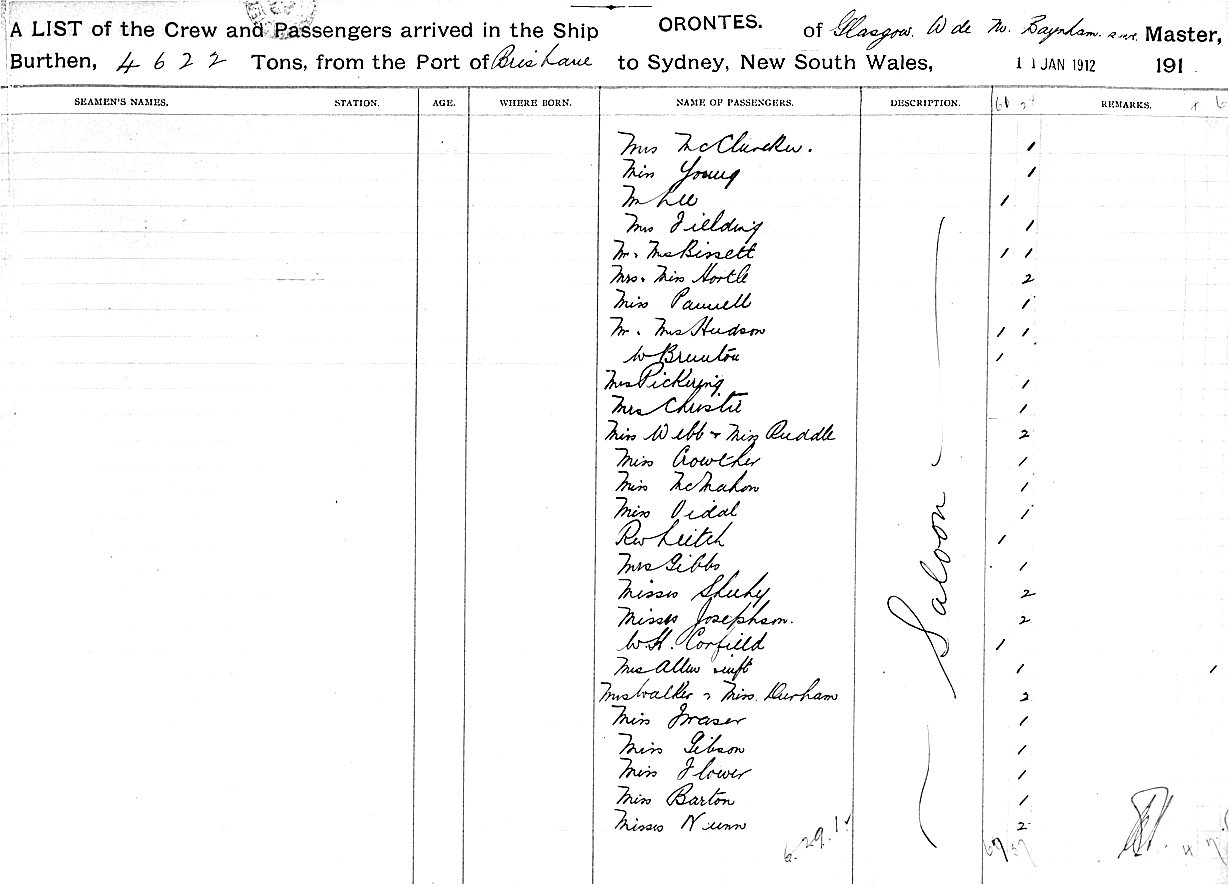 A LIST of the Crew and Passengers arrived in the Ship ORONTES. of Glasgow. A de M. Baynham. Master,
Burthen, 4622 Tons, from the Port of Brisbane to Sydney, New South Wales, 11 JAN 1912 191
SEAMEN'S NAMES. STATION. AGE. WHERE BORN. NAME OF PASSENGERS. DESCRIPTION. REMARKS.
Mrs McClurcken. 1
Miss Young 1
Mr Lee 1
Mrs Fielding 1
Mr. Mrs Bissett 1 1
Mrs. Miss Hortle 2
Miss Pannell 1
Mr. Mrs Hudson 1 1
W Brunton 1
Mrs Pickering 1
Mrs Christie 1
Miss Webb + Miss Ruddle 2
Miss Crowther 1
Miss McMahon 1
Miss Vidal 1
Rev Leitch 1
Mrs Gibbs 1
Saloon
Misses Sheehy 2
Misses Josephson. 2
W.H. Corfield 1
Mrs Allen inft 1 1
Mrs Walker + Miss. Durham 2
Miss Fraser 1
Miss Gibson 1
Miss Flower 1
Miss Barton 1
Misses Nunn 2
6.29.1